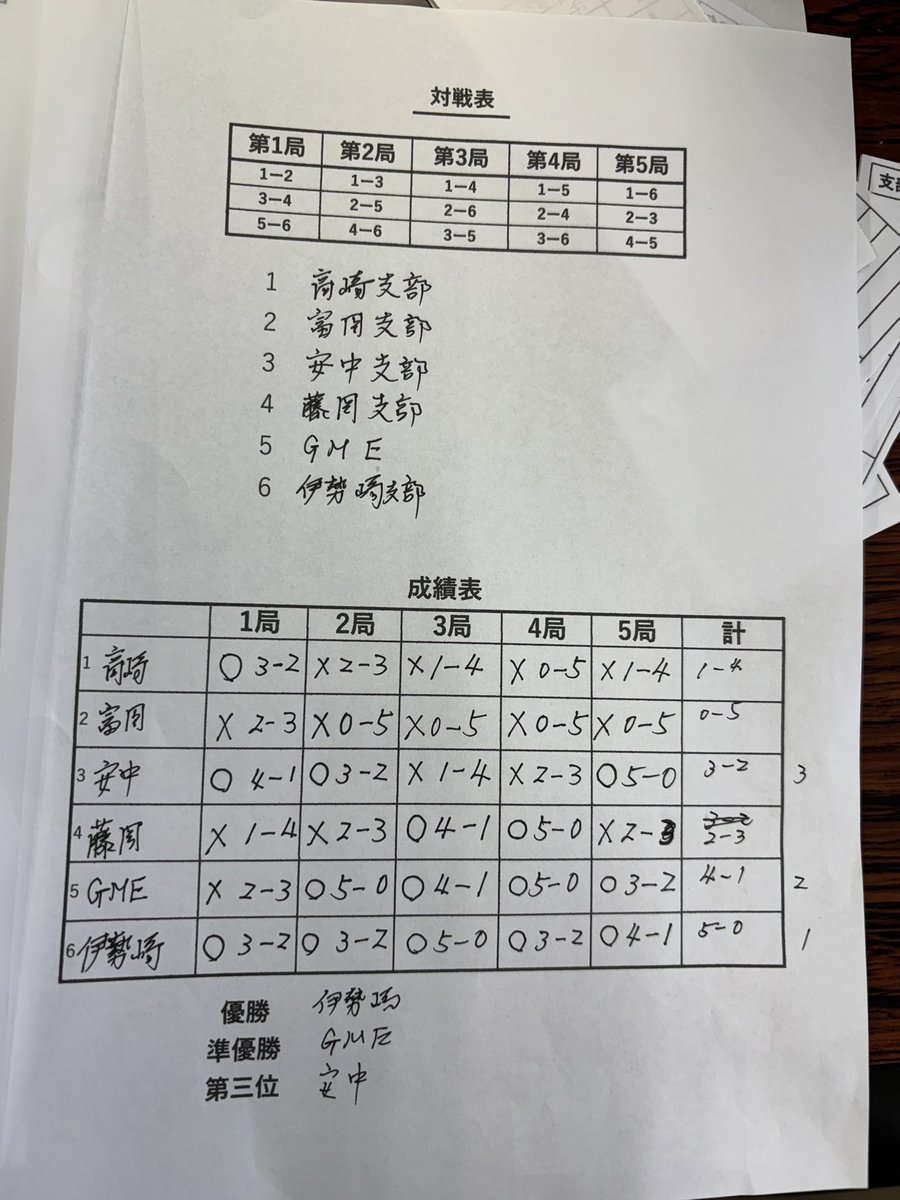 対戦表
第1局 第2局 第3局 第4局 第5局
1ー2 1ー3 1ー4 1ー5 1ー6
3ー4 2ー5 2ー6 2ー4 2ー3
5ー6 4ー6 3ー5 3ー6 4ー5
1 高崎支部
2 富岡支部
3 安中支部
4 藤岡支部
5 GME
6 伊勢崎支部
成績表
1局 2局 3局 4局 5局 計
1 高崎 ○ 3-2 × 2-3 × 1-4 × 0-5 × 1-4 1-4
2 富岡 × 2-3 × 0-5 × 0-5 × 0-5 × 0-5 0-5
3 安中 ○ 4-1 ○ 3-2 × 1-4 × 2-3 ○ 5-0 3-2 3
4 藤岡 × 1-4 × 2-3 ○ 4-1 ○ 5-0 × 2-3 2-3
5 GME × 2-3 ○ 5-0 ○ 4-1 ○ 5-0 ○ 3-2 4-1 2
6 伊勢崎 ○ 3-2 ○ 3-2 ○ 5-0 ○ 3-2 ○ 4-1 5-0 1
優勝 伊勢崎
準優勝 GME
第三位 安中
支部